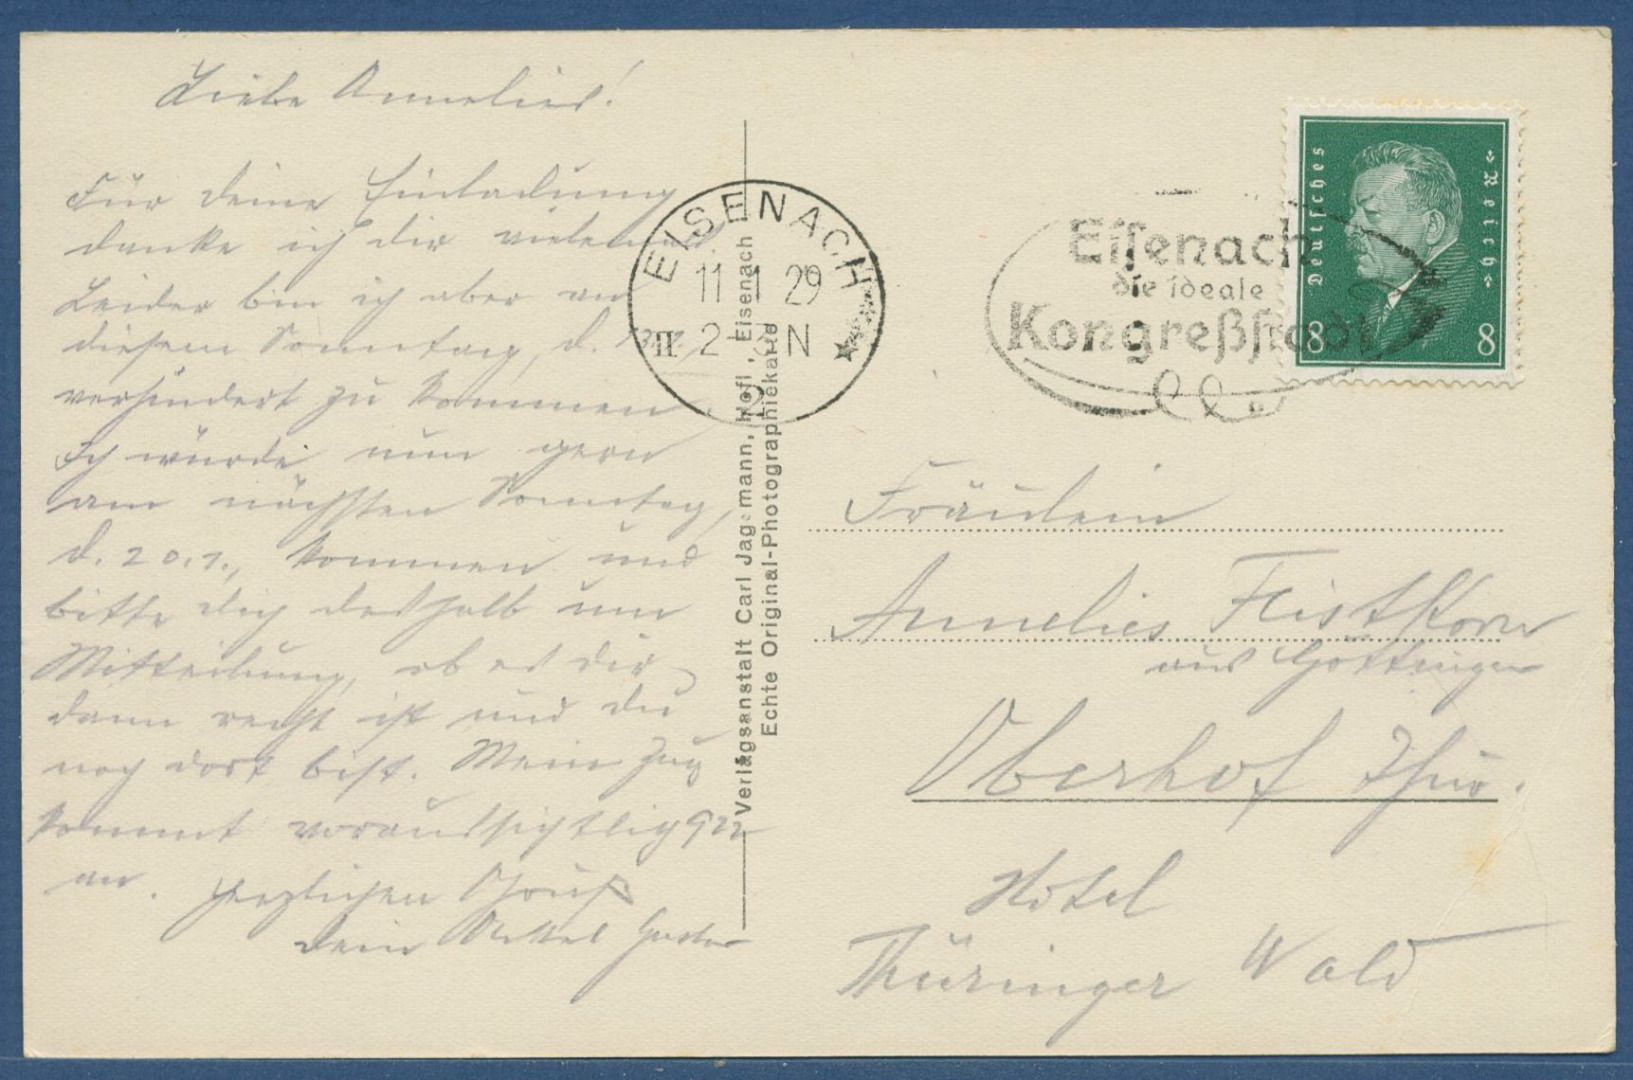 Liebe Annelies!
Für deine Einladung
danke ich dir vielemals.
Leider bin ich aber an
diesem Sonntag, d. 13.1.,
verhindert zu kommen.
Ich würde nun gern
am nächsten Sonntag,
d. 20.1., kommen und
bitte dich deshalb um
Mitteilung, ob es dir
dann recht ist und du
noch dort bist. Mein Zug
kommt voraussichtlich 9²²
an. Herzlichen Gruß
Dein Onkel Gustav
EISENACH
11 1 29
III 2-3 N
Eisenach
die ideale
Kongreßstadt
Deutsches Reich
8 8
Verlagsanstalt Carl Jagemann, Hofl., Eisenach
Echte Original-Photographiekarte
Fräulein
Annelies Fleistkorn
aus Göttingen
Oberhof Thür.
Hotel
Thüringer Wald